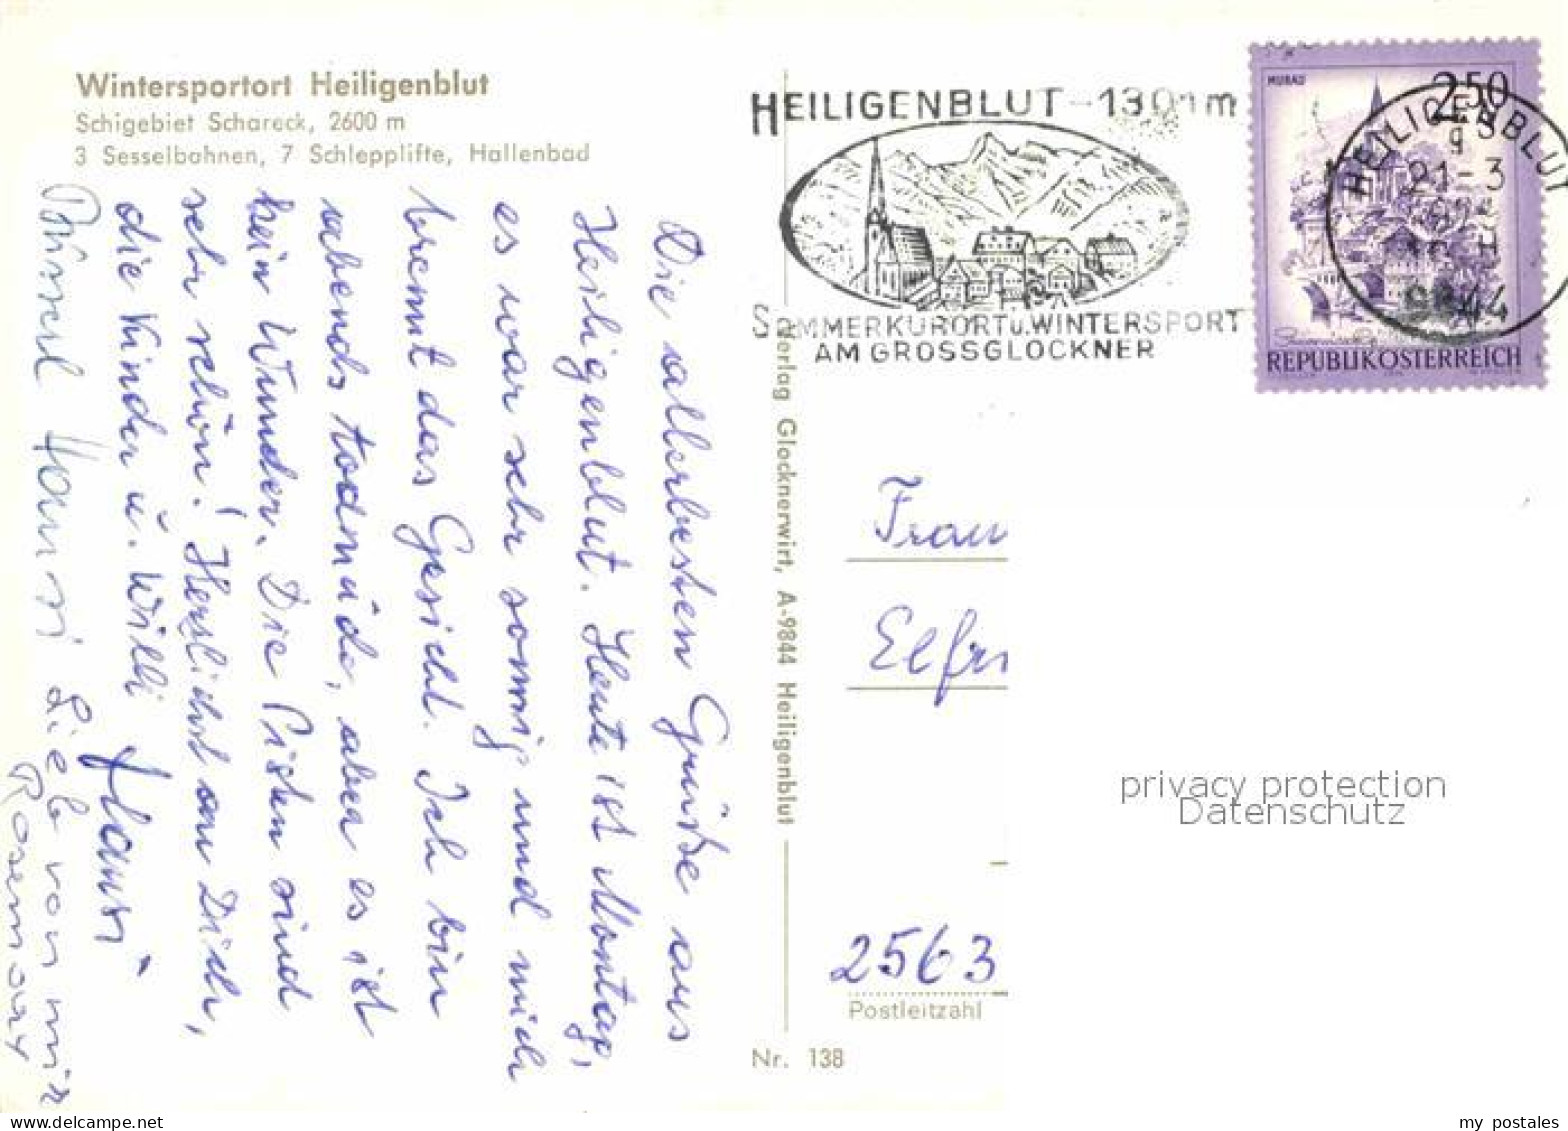 Wintersportort Heiligenblut
Schigebiet Schareck, 2600 m
3 Sesselbahnen, 7 Schlepplifte, Hallenbad
Die allerbesten Grüße aus
Heiligenblut. Heute ist Montag,
es war sehr sonnig und mich
brennt das Gesicht. Ich bin
abends todmüde, aber es ist
kein Wunder. Die Pisten sind
sehr schön! Herzlichst an Dich,
die Kinder u. Willi Hansi
Bussi Hansi Lieb von mir
Rosemary
Verlag Glocknerwirt, A-9844 Heiligenblut
Nr. 138
HEILIGENBLUT - 1301 m
SOMMERKURORT u. WINTERSPORT
AM GROSSGLOCKNER
MURAU
2,50
REPUBLIK ÖSTERREICH
HEILIGENBLUT
21-3
9844
Frau
Elfri
2563
Postleitzahl
privacy protection
Datenschutz
my postales
delcampe.net